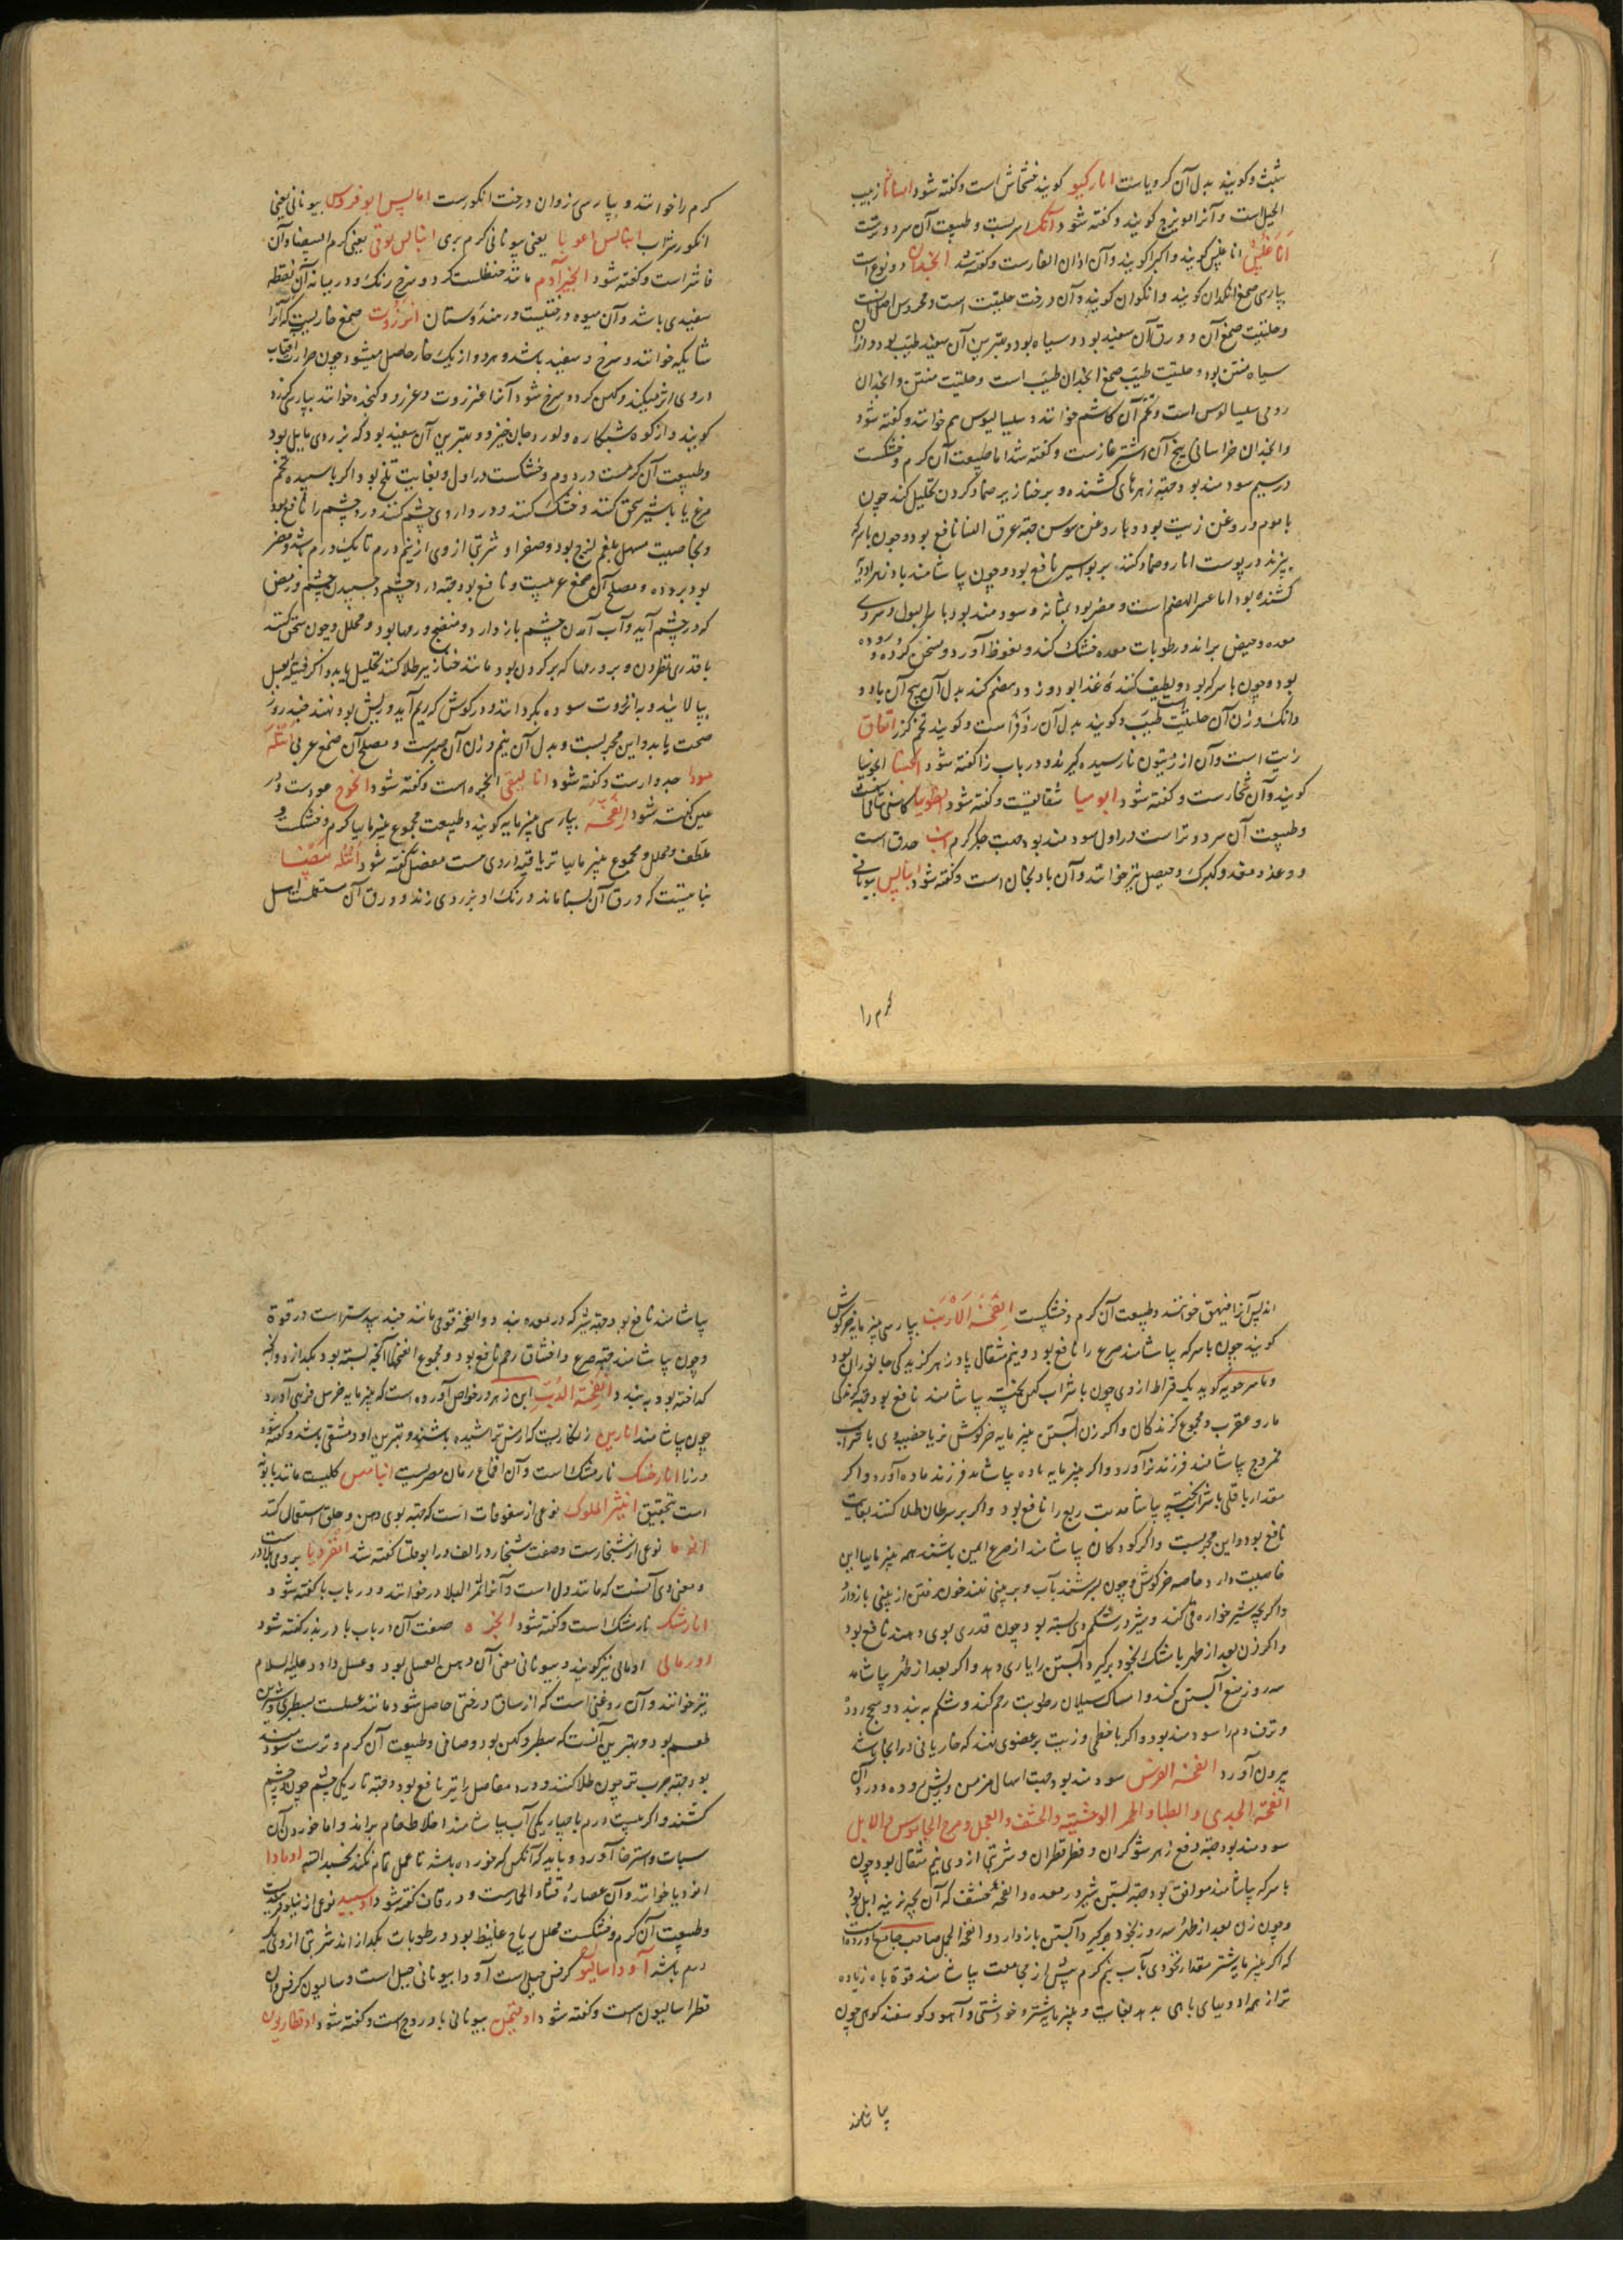 شبث و کویند بدل آن کرویاست انارکیو کویند خشخاش است و کفته شود زبیب
الجبل است و آنرا مویزج کویند و کفته شود آنک اسربست و طبیعت آن سرد و ترست
اناغلیس کویند و آن اذان الفارست و کفته شد انجدان دو نوع است
بپارسی صمغ انکدان کویند و انکوان کویند و آن درخت حلتیت است و محروس اصل آنست
و حلتیت صمغ آن و ورق آن سفید بود و سیاه بود و بهترین آن سفید طیب بود و از آن
سیاه منتن بود و حلتیت طیب صمغ انجدان طیب است و حلتیت منتن و انجدان
رومی سیسالیوس است و تخم آن کاشم خوانند و سیسالیوس هم خوانند و کفته شود
و انجدان خراسانی بیخ آن اشترغازست و کفته شد اما طبیعت آن کرم و خشکست
در سیم سودمند بود وجهت زهرهای کشنده و بر خنازیر ضماد کردن تحلیل کند چون
با موم و روغن زیت بود و با روغن سوسن جهة عرق النسا نافع بود و چون با سرکه
بپزند در پوست انار و ضماد کنند بر بواسیر نافع بود و چون بیاشامند پادزهر ادویه
کشنده بود اما عسر الهضم است و مضر بود بمثانه و سودمند بود با سر البول و سردی
معده و حیض براند و رطوبات معده خشک کند و نعوظ آورد و مسخن کرده و روده
بود و چون با سرکه بود و لطیف کننده غذا بود و زود هضم کند بدل آن بیخ آن باد و
دانک وزن آن حلتیت طیب و کویند بدل آن زوفراست و کویند تخم کزر انفاق
زیت است و آن از زیتون نارسیده کیرند و در باب زا کفته شود
کویند و آن شنجارست و کفته شود ابو میا شقایقست و کفته شود انطوبیا کاسنی شامی است
و طبیعت آن سرد و تر است در اول سودمند بود جهت جکر کرم انب حدق است
و وغد و مغد و کهرک و حیصل نیز خوانند و آن بادنجان است و کفته شود انبالس بیونانی
کرم را
کرم را خوانند و بپارسی رزوان درخت انکورست امالیس ابوفروس بیونانی یعنی
انکور شراب یعنی بیونانی کرم بری انبالس لوقی یعنی کرم البیضا و آن
فاشراست و کفته شود انجیر آدم مانند حنظلست کرد و سرخ رنک و در میانه آن نقطه
سفیدی باشد و آن میوه درختیست در هندوستان انزروت صمغ خاریست که آنرا
شایکه خوانند و سرخ و سفید باشد و هر دو از یک خار حاصل میشود چون حرارت آفتاب
در وی اثر میکند و کهن کردد سرخ شود آنرا عنزروت و عزرو و کنجده خوانند بپارسی کرزد
کویند و از کوه شبنکاره و لور دجان خیزد و بهترین آن سفید بود که بزردی مایل بود
و طبیعت آن کرمست در دوم و خشکست در اول و بغایت تلخ بود و اکر با سپیده تخم
مرغ یا با شیر سحق کنند و خشک کنند و در داروی چشم کنند درد چشم را نافع بود
و بخاصیت مسهل بلغم لزج بود و صفرا و شربتی از وی از نیم درم تا یک درم باشد و مضر
بود بروده و مصلح آن صمغ عربیست و نافع بود جهة درد چشم و چسبیدن چشم و رمص
که در چشم آید و آب آمدن چشم باز دارد و منضج ورمها بود و محلل و چون سحق کنند
با قدری نطرون و بر ورمها که بر کردن بود مانند خنازیر طلا کنند تحلیل یابد و اکر فتیله بعسل
بیالایند و بانزروت سوده بکردانند و در کوش که ریم آید و ریش بود نهند چند روز
صحت یابد و این مجربست و بدل آن نیم وزن آن صبرست و مصلح آن صمغ عربی انتله
سودا جدوارست و کفته شود انالیقی انجره است و کفته شود انجوج عودست و در
عین کفته شود انفحه بپارسی پنیرمایه کویند و طبیعت مجموع پنیرمایها کرم و خشک و
ملطف و محلل و مجموع پنیرمایها تریاقیة دروی هست مفصل کفته شود انتله بیضا
نباتیست که ورق آن بسنا ماند و رنک او بزردی زند و ورق آن مستعملست اهل
اندلس آنرا فیهق خوانند و طبیعت آن کرم و خشکست انفحة الارنب بپارسی پنیرمایه خرکوش
کویند چون با سرکه بیاشامند صرع را نافع بود و نیم مثقال پادزهر کزیدکی جانوران بود
و ماسرجویه کوید یک قیراط از وی چون با شراب کهن بیاشامند نافع بود جهة کزندکی
مار و عقرب و مجموع کزندکان و اکر زن آبستن پنیرمایه خرکوش نر یا خصیه وی با شراب
ممزوج بیاشامند فرزند نر آورد و اکر پنیرمایه ماده بیاشامد فرزند ماده آورد و اکر
مقدار باقلی با شراب بیاشامد تب ربع را نافع بود و اکر بر سرطان طلا کنند بغایت
نافع بود و این مجربست و اکر کودکان بیاشامند از صرع ایمن باشند همه پنیرمایها این
خاصیت دارد خاصه خرکوش و چون بسرشند بآب و بر بینی نهند خون رفتن از بینی باز دارد
و اکر بچه شیرخواره قی کند و شیر در شکم وی بسته بود چون قدری بوی دهند نافع بود
و اکر زن بعد از طهر با مشک بخود برکیرد آبستن را یاری دهد و اکر بعد از طهر بیاشامد
سه روز منع آبستن کند و امساک سیلان رطوبت رحم کند و شکم به بندد و سحج روده
و نزف دم را سودمند بود و اکر با خطمی و زیت بر عضوی نهند که خار یا نی در آنجا باشد
بیرون آورد انفحة الفرس سودمند بود جهت اسهال مزمن و ریش روده و درد آن
انفحة الجدی و الظبا و الحمر الوحشیه و الخشف و العجل و مرح الجاموس و الابل
سودمند بود جهة دفع زهر شوکران و فطر قطران و شربتی از وی نیم مثقال بود چون
با سرکه بیاشامند موافق بود جهة بستن شیر در معده و انفحه خشف که آن بچه نرینه ابل بود
و چون زن بعد از طهر سه روز بخود برکیرد آبستن باز دارد و انفحة الجمل صاحب جامع آورده است
که اکر پنیرمایه شتر مقدار نخودی بآب نیم کرم پیش از مجامعت بیاشامند قوة باه زیاده
تر از همه ادویهای باهی بدهد بغایت و پنیرمایه شتر و خر دشتی و آهو و کوسفند کوهی چون
بیاشامند
بیاشامند نافع بود جهة شیر که در معده بندد و انفحه قوقی مانند جند بیدستر است در قوة
و چون بیاشامند جهة صرع و اختناق رحم نافع بود و مجموع انفحها آنچه بسته بود بکدازد و آنچه
کداخته بود به بندد و انفحة الدب ابن زهر در خواص آورده است که پنیرمایه خرس فربهی آورد
چون بیاشامند انارین زنکاریست که از مس تراشیده باشند و بهترین او دمشقی باشد و کفته شود
در زا انارخسک نارمشک است و آن اقماع رمان مصریست انیامیس کلیست مانند بابونه
است بتحقیق انیثر الملوک نوعی از سفوفات است که جهة بوی دهن و حلق استعمال کنند
نوعی از شنجارست و صفت شنجار در الف در ابو حلسا کفته شد انقردیا برومی بلادرست
و معنی وی آنست که مانند دل است و آنرا ثمر البلادر خوانند و در باب با کفته شود
انارمشک نارمشک است و کفته شود انجره صفت آن در باب با در بذر کفته شود
اورمالی اومالی نیز کویند و بیونانی معنی آن دهن العسلی بود و عسل داود علیه السلام
نیز خوانند و آن روغنی است که از ساق درختی حاصل شود مانند عسلست بسطبری و شیرین
طعم بود و بهترین آنست که سطبر و کهن بود و صافی و طبیعت آن کرم و ترست سودمند
بود جهة جرب تر چون طلا کنند و درد مفاصل را نیز نافع بود و جهة تاریکی چشم چون در چشم
کشند و اکر بیست درم با چهار یکی آب بیاشامند اخلاط خام براند و اما خوردن آن
سبات و استرخا آورد و باید که آنکس که خورده باشد تا عمل تمام نکند نخسبد البته اومادا
خوانند و آن عصاره قثاء الحمارست و در قاف کفته شود اوسبید نوعی از نیلوفر هندیست
و طبیعت آن کرم و خشکست محلل ریاح غلیظ بود و رطوبات بکدازاند شربتی از وی یک
درم باشد آوداسالیو کرفس جبلی است آودا بیونانی جبل است و سالیون کرفس و آن
قطراسالیون است و کفته شود اوقیمن بیونانی بادروج است و کفته شود اوقطاریون